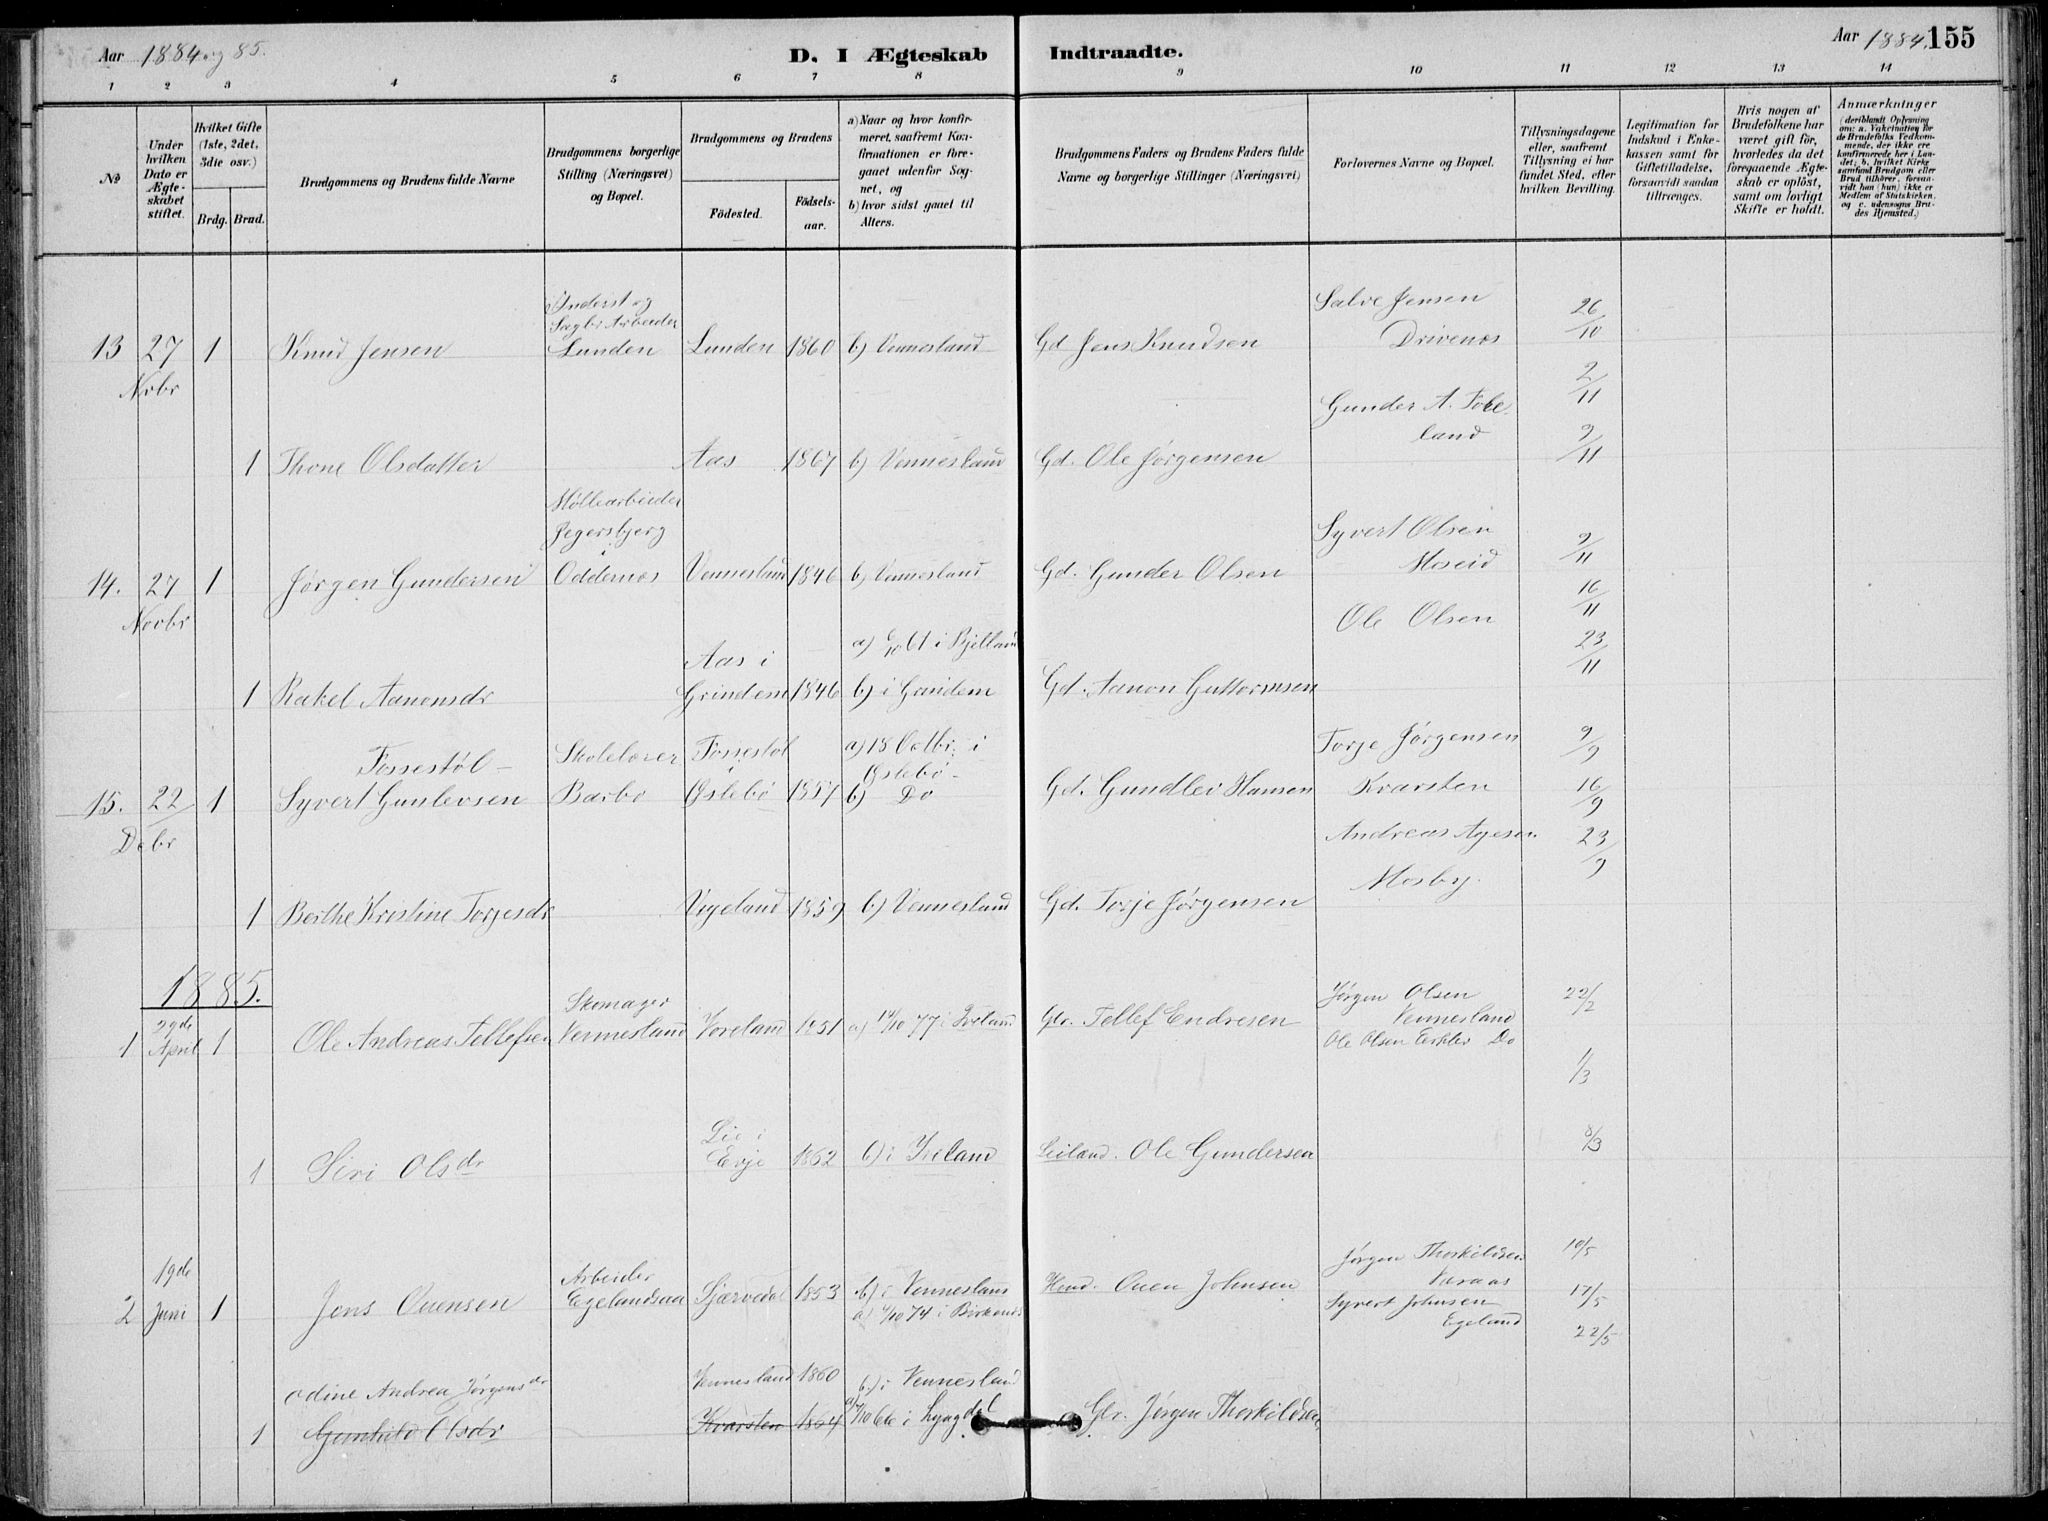 Aar 1884 og 85.
D. I Ægteskab Indtraadte.
Aar 1884. 155
1 2 3 4 5 6 7 8 9 10 11 12 13 14
No
Under hvilken Dato er Ægteskabet stiftet.
Hvilket Gifte (1ste, 2det, 3die osv.)
Brdg. Brud.
Brudgommens og Brudens fulde Navne
Brudgommens borgerlige Stilling (Næringsvei) og Bopæl.
Brudgommens og Brudens
Födested. Födselsaar.
a) Naar og hvor konfirmeret, saafremt Konfirmationen er foregaaet udenfor Sognet, og
b) hvor sidst gaaet til Alters.
Brudgommens Faders og Brudens Faders fulde Navne og borgerlige Stillinger (Næringsvei)
Forlovernes Navne og Bopæl.
Tillysningsdagene eller, saafremt Tillysning ei har fundet Sted, efter hvilken Bevilling.
Legitimation for Indskud i Enkekassen samt for Giftetilladelse, forsaavidt saadan tiltrænges.
Hvis nogen af Brudefolkene har været gift för, hvorledes da det foregaaende Ægteskab er oplöst, samt om lovligt Skifte er holdt.
Anmærkninger (deriblandt Oplysning om: a. Vakcination for de Brudefolks Vedkommende, der ikke ere konfirmerede her i Landet; b. hvilket Kirkesamfund Brudgom eller Brud tilhörer, forsaavidt han (hun) ikke er Medlem af Statskirken, og c. udensogns Brudes Hjemsted.)
Inderst og
Sagbr. Arbeider
13 27 Novbr 1 Knud Jensen Lunden Lunden 1860 b) Vennesland Gd Jens Knudsen
Salve Jensen
Drivenes
26/10
2/11
Gunder A. Fore
land
9/11
1 Thone Olsdatter Aas 1867 b) Vennesland Gd. Ole Jørgensen
Møllearbeider
Jegersbjerg
i
14. 27 Novbr 1 Jørgen Gundersen Oddernes Vennesland 1846 b) Vennesland Gd. Gunder Olsen
Syvert Olsen
Moseid
9/11
16/11
Ole Olsen
23/11
Aas i
a) 6/10 61 i Bjelland
1 Rakel Aanonsdr Grindem 1846 b) i Grindem Gd. Aanon Guttormsen
Fossestøl Skolelærer Fossestøl i
a) 18 Octbr. i Øslebø
15. 22 Debr 1 Syvert Gunlevsen Barbo Øslebø 1857 b) Do Gd. Gundlev Hansen
Torje Jørgensen
Kvarsten
9/9
16/9
Andreas Agesen
Mosby.
23/9
1 Berthe Kristine Torjesdr Vigeland 1859 b) Vennesland Gd. Torje Jørgensen
1885.
1 29de April 1 Ole Andreas Tellefsen Skomager Vennesland Voreland 1851 a) 14/10 77 i Iveland Gbr. Tellef Endresen
Jørgen Olsen
Vennesland
Ole Olsen Do
22/2
1/3
8/3
1 Siri Olsdr Lie i Evje 1862 b) i Iveland Leiland. Ole Gundersen
2 19de Juni 1 Jens Ouensen Arbeider Egelandsaa 1853 b) i Vennesland
a) 4/10 74 i Birkenes
Ouen Johnsen
Jørgen Thorkildsen
Varaas
Syvert Johnsen
Egeland
10/5
17/5
22/5
Odine Andrea Jørgensdr Vennesland 1860 b) i Vennesland
1 Gunhild Olsdr Kvarsten 1864 a) 66 i Lyngdal Gbr. Jørgen Thorkildsen